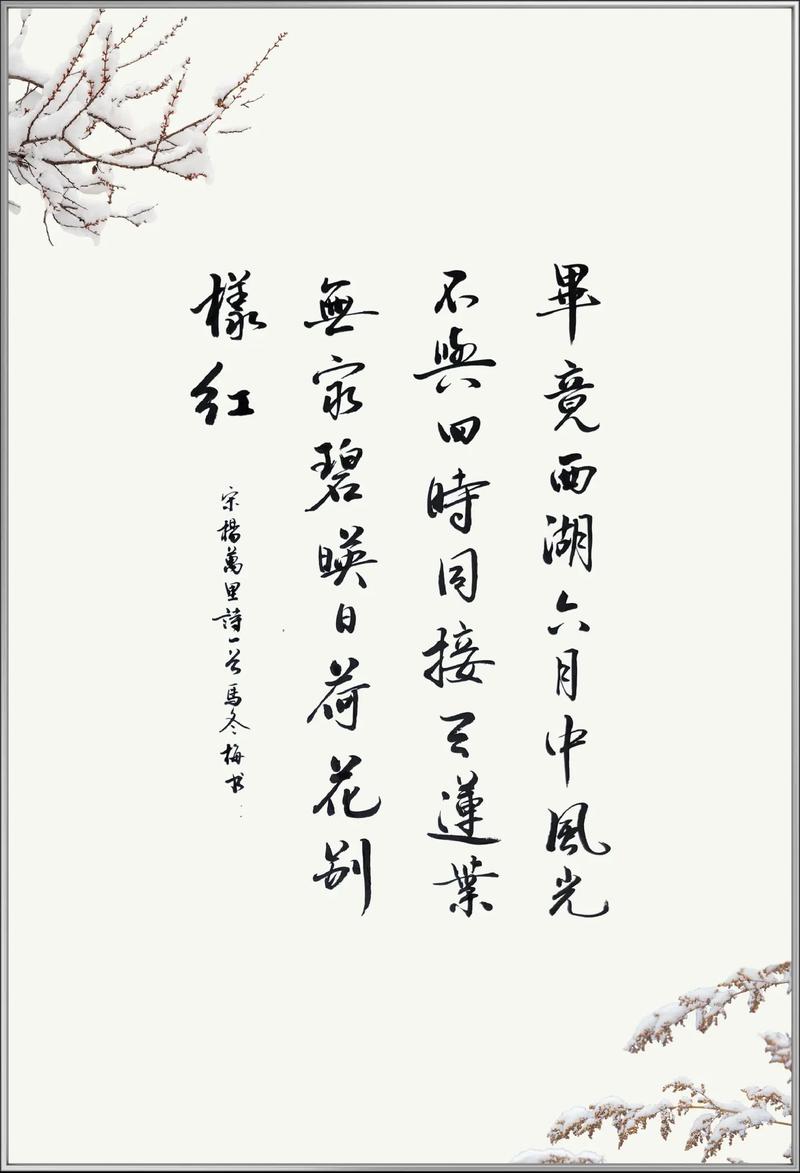 畢竟西湖六月中風光
不與四時同接天蓮葉
無窮碧暎日荷花别
樣紅
宋楊萬里詩一首馬冬梅书